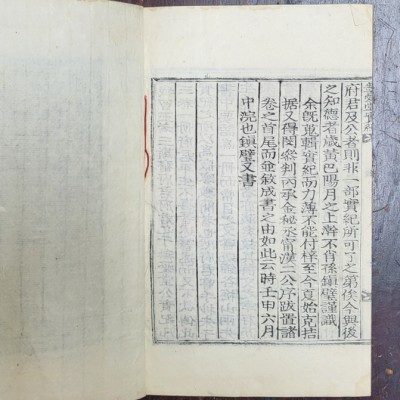 府君及公者則非一部實紀所可了之第俟今與後
之知德者歲黃巴陽月之上澣不肖孫鎮璧謹識
余旣蒐輯實紀而力薄不能付梓至今夏始克拮
据又得閔叅判丙承金秘丞甯漢二公序跋置諸
卷之首尾而並敘成書之由如此云時壬申六月
中浣也鎮璧又書